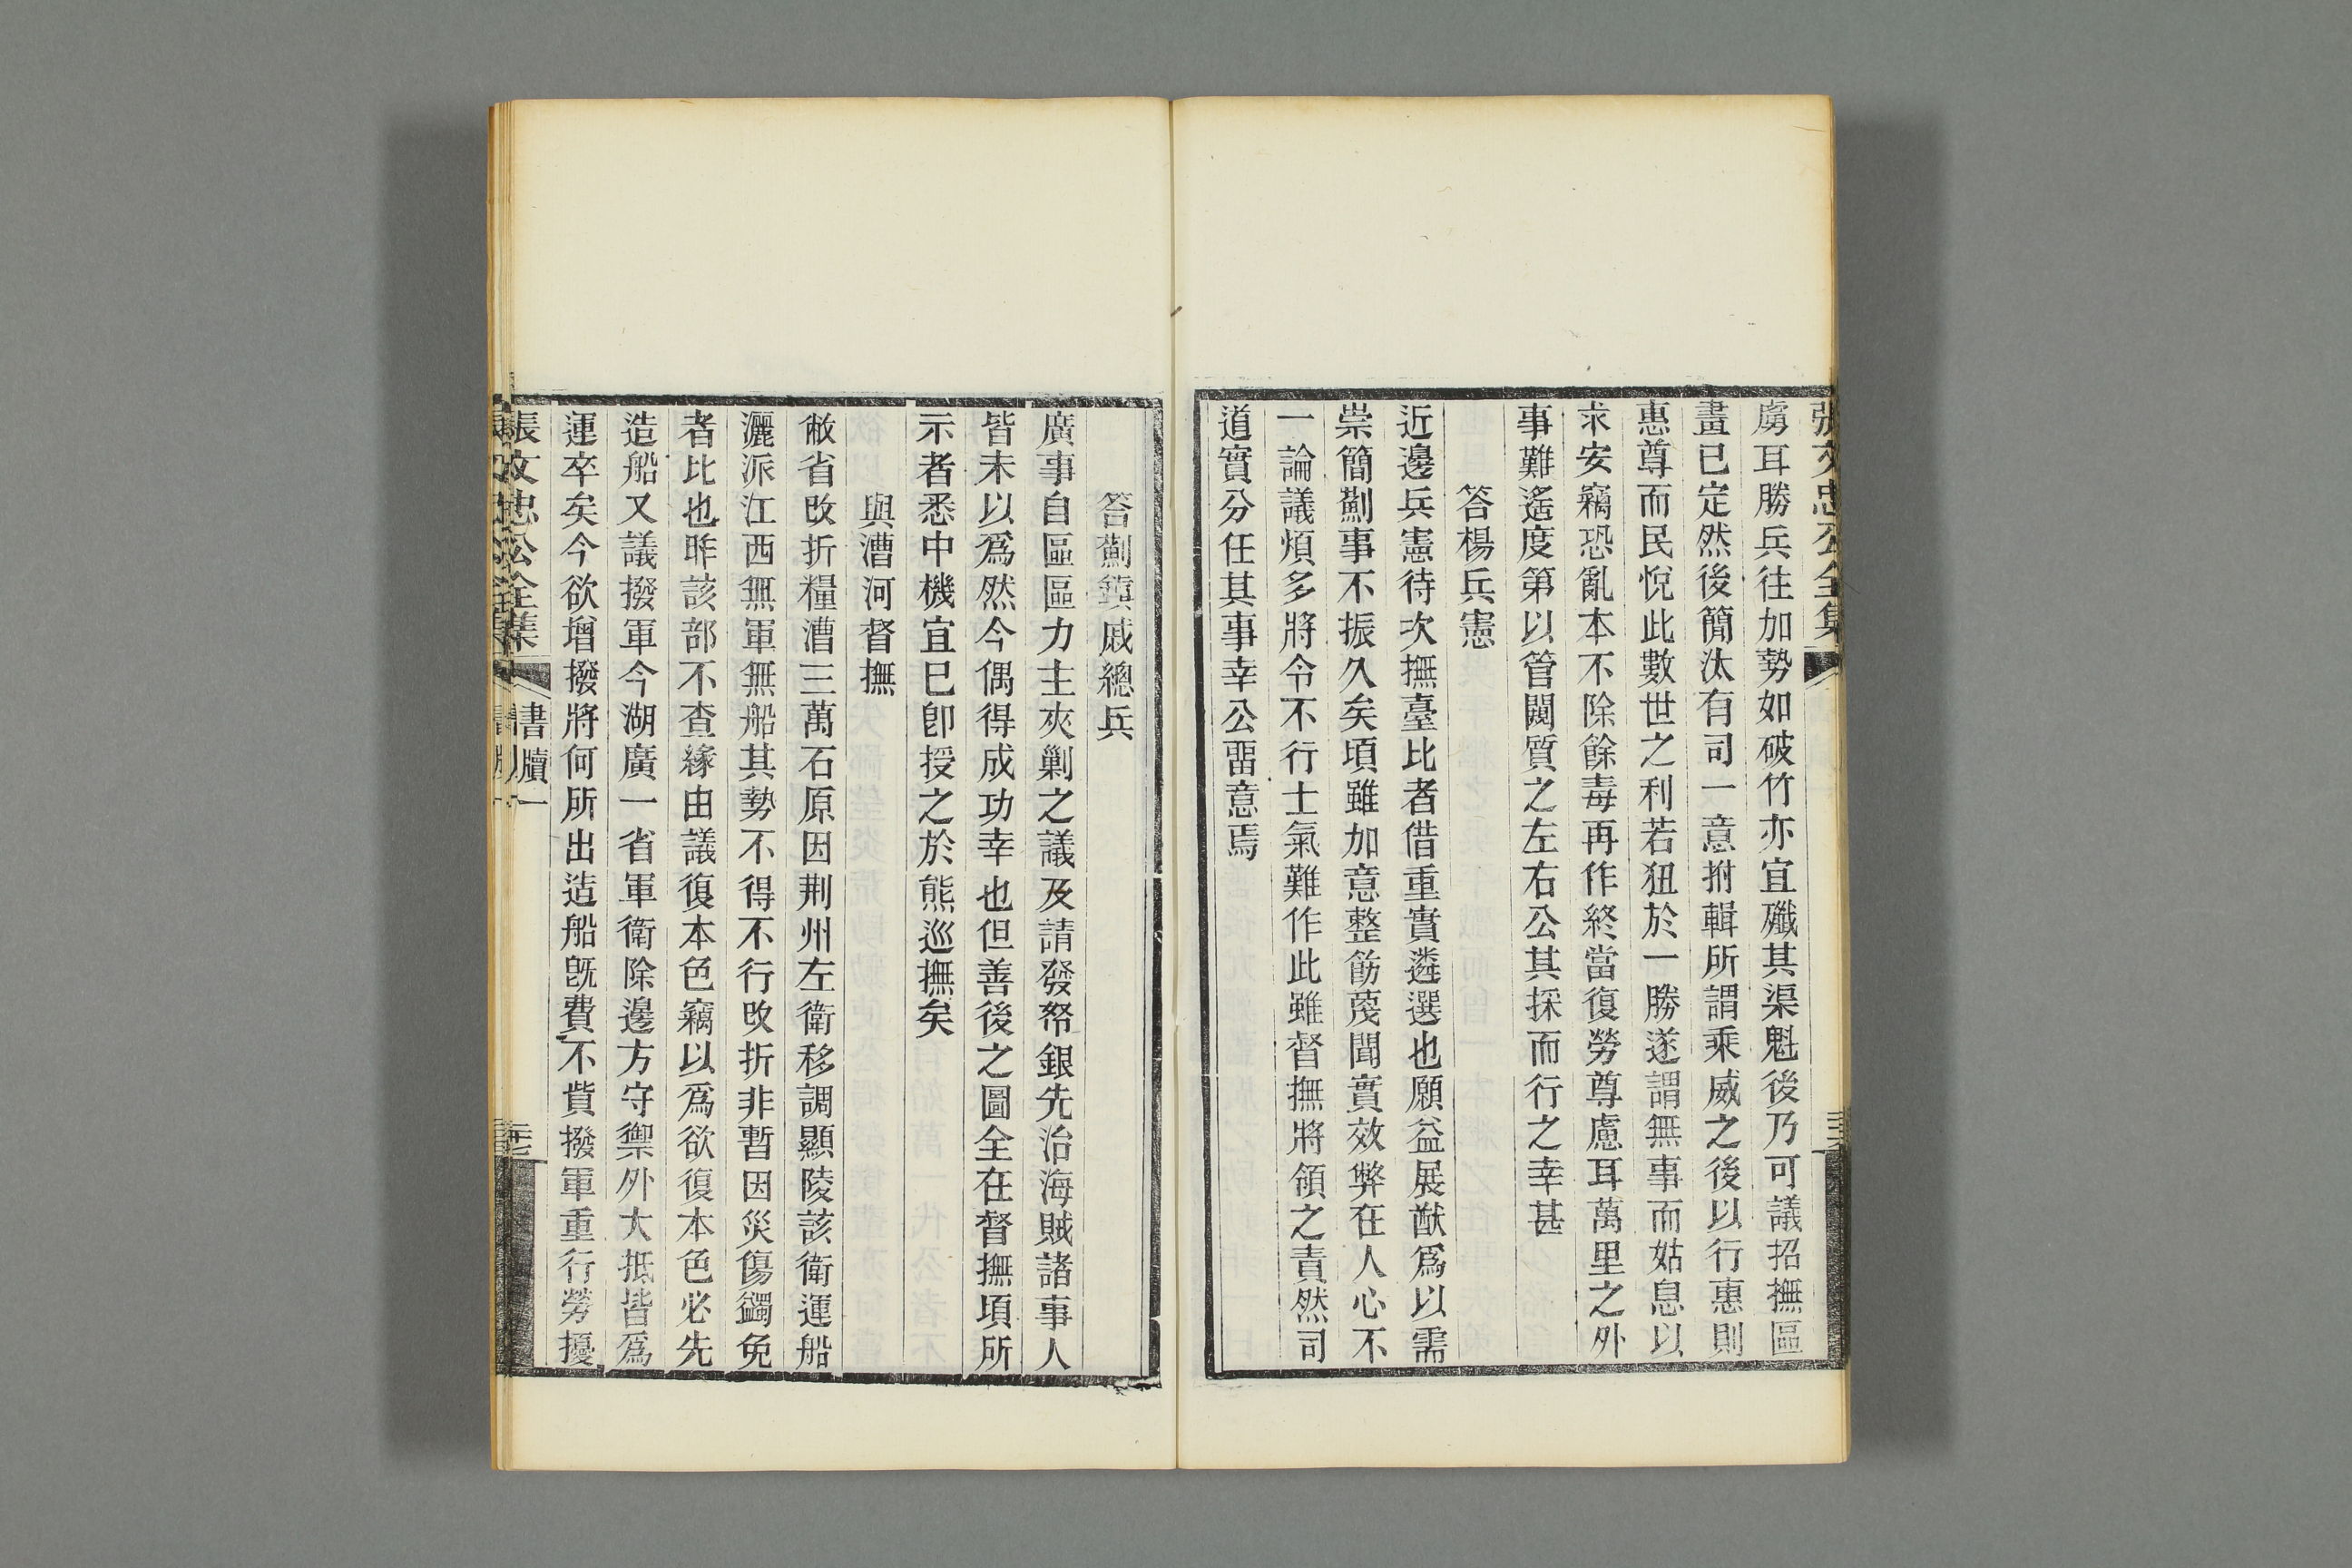 張文忠公全集
虜耳勝兵往加勢如破竹亦宜殲其渠魁後乃可議招撫區
畫已定然後簡汰有司一意拊輯所謂乘威之後以行惠則
惠尊而民悅此數世之利若狃於一勝遂謂無事而姑息以
求安竊恐亂本不除餘毒再作終當復勞尊慮耳萬里之外
事難遙度第以管闚質之左右公其採而行之幸甚
答楊兵憲
近邊兵憲待次撫臺比者借重實遴選也願益展猷爲以需
崇簡薊事不振久矣頃雖加意整飭蔑聞實效弊在人心不
一論議煩多將令不行士氣難作此雖督撫將領之責然司
道實分任其事幸公畱意焉
答薊鎭戚總兵
廣事自區區力主夾剿之議及請發帑銀先治海賊諸事人
皆未以爲然今偶得成功幸也但善後之圖全在督撫頃所
示者悉中機宜巳卽授之於熊巡撫矣
與漕河督撫
敝省改折糧漕三萬石原因荆州左衛移調顯陵該衛運船
灑派江西無軍無船其勢不得不行改折非暫因災傷蠲免
者比也昨該部不查緣由議復本色竊以爲欲復本色必先
造船又議撥軍今湖廣一省軍衛除邊方守禦外大抵皆爲
運卒矣今欲增撥將何所出造船旣費不貲撥軍重行勞擾
張文忠公全集
書牘一